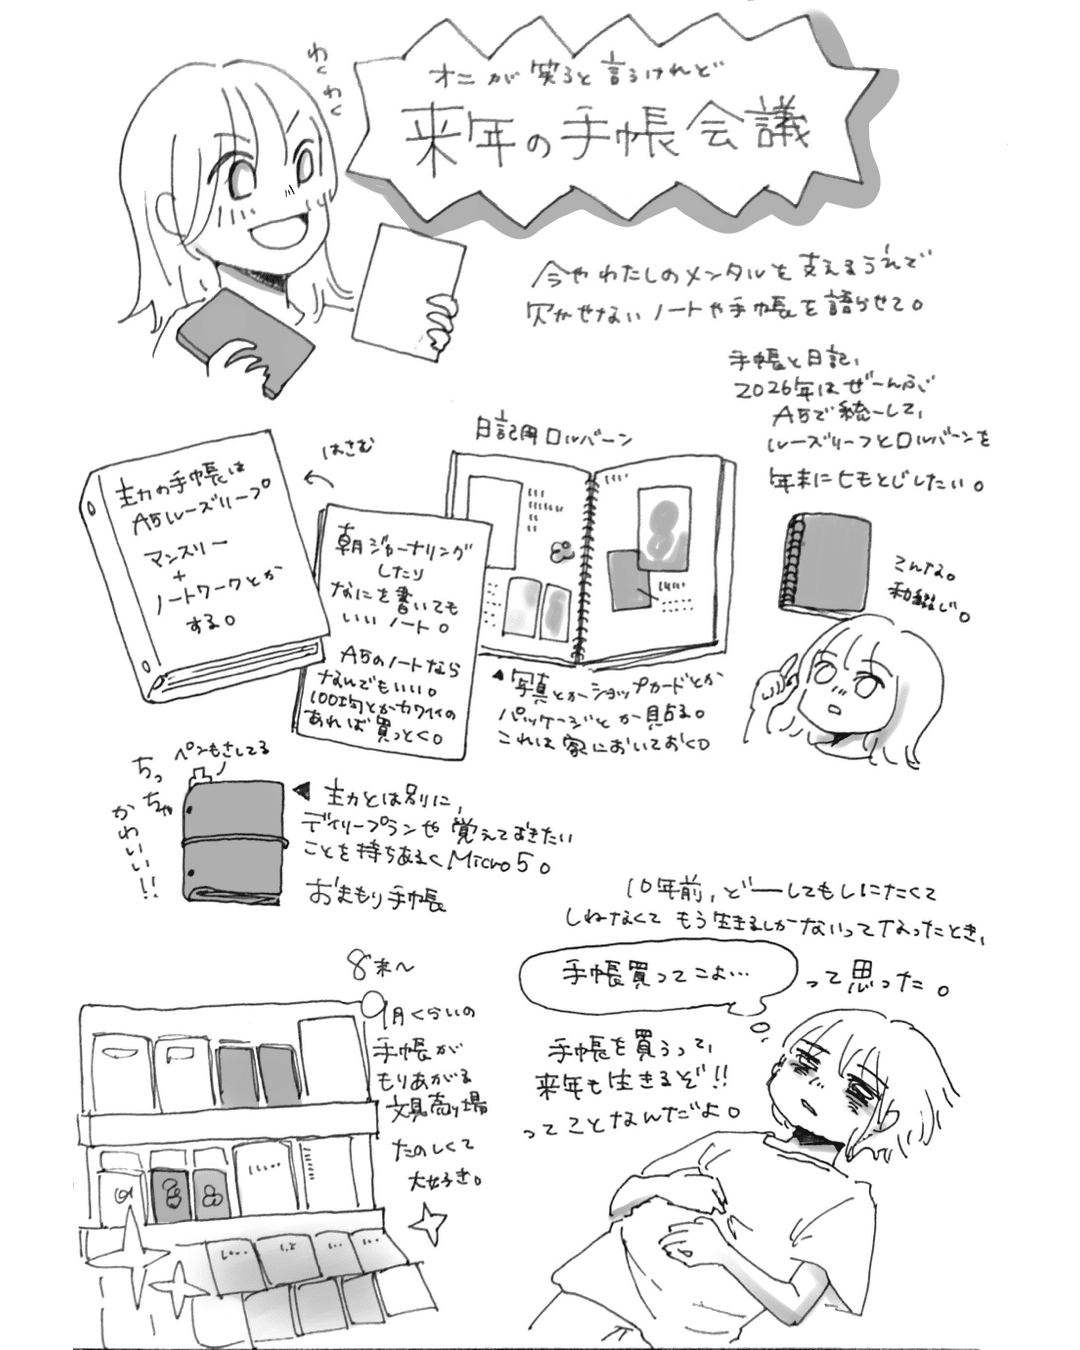 わくわく
オニが笑うと言うけれど
来年の手帳会議
今やわたしのメンタルを支えるうえで
欠かせないノートや手帳を語らせて。
手帳と日記、
2026年はぜーんぶ
A5で統一して、
ルーズリーフとロルバーンを
年末に七もとじしたい。
こんな。
和綴じ。
日記用ロルバーン
はさむ
主力の手帳は
A5ルーズリーフ
マンスリー
+
ノートワークとか
する。
朝ジャーナリング
したり
なにを書いても
いいノート。
A5のノートなら
なんでもいい。
100均とかカワイイの
あれば買っとく。
▲写真とかショップカードとか
パッケージとか貼る。
これは家においておく
ペンもさしてる
ちっちゃ
かわいい!!
◀主力とは別に、
デイリープランや覚えておきたい
ことを持ちあるくMicro5。
おまもり手帳
10年前、どーしてもしにたくて
しねなくてもう生きるしかないってなったとき、
手帳買ってこよ…
って思った。
手帳を買うって、
来年も生きるぞ!!
ってことなんだよ。
8末〜
9月くらいの
手帳が
もりあがる
文具売り場
たのしくて
大好き。